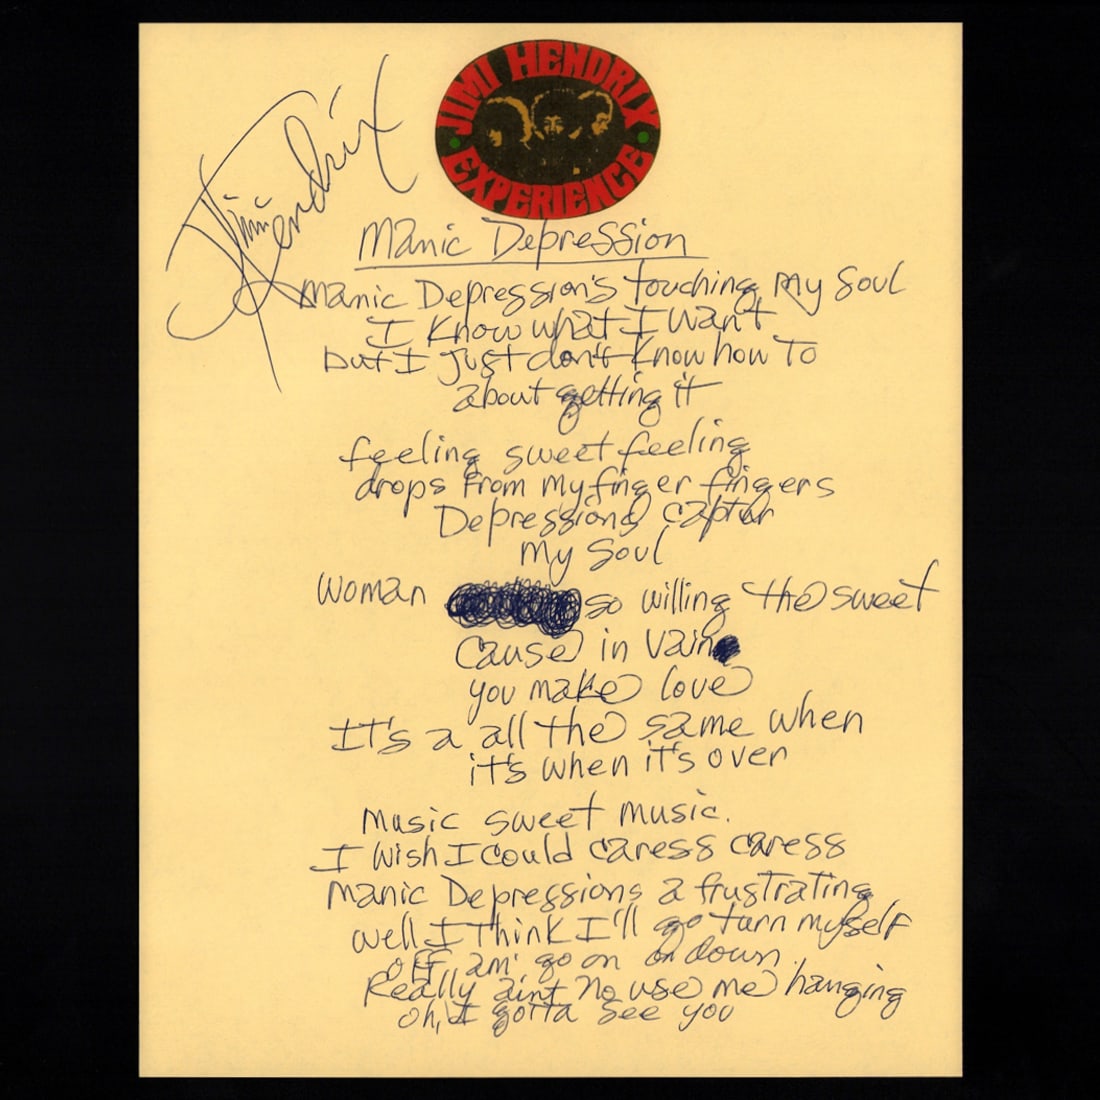 JIMI HENDRIX
EXPERIENCE
Jimi Hendrix
Manic Depression
Manic Depression's touching my soul
I know what I want
but I just don't know how to
about getting it
feeling sweet feeling
drops from my finger fingers
Depressions captur
my soul
woman so willing the sweet
cause in vain
you make love
It's a all the same when
it's when it's over
Music sweet music.
I wish I could caress caress
Manic Depressions a frustrating
well I think I'll go turn myself
off an' go on on down.
Really aint no use me hanging
oh, I gotta see you